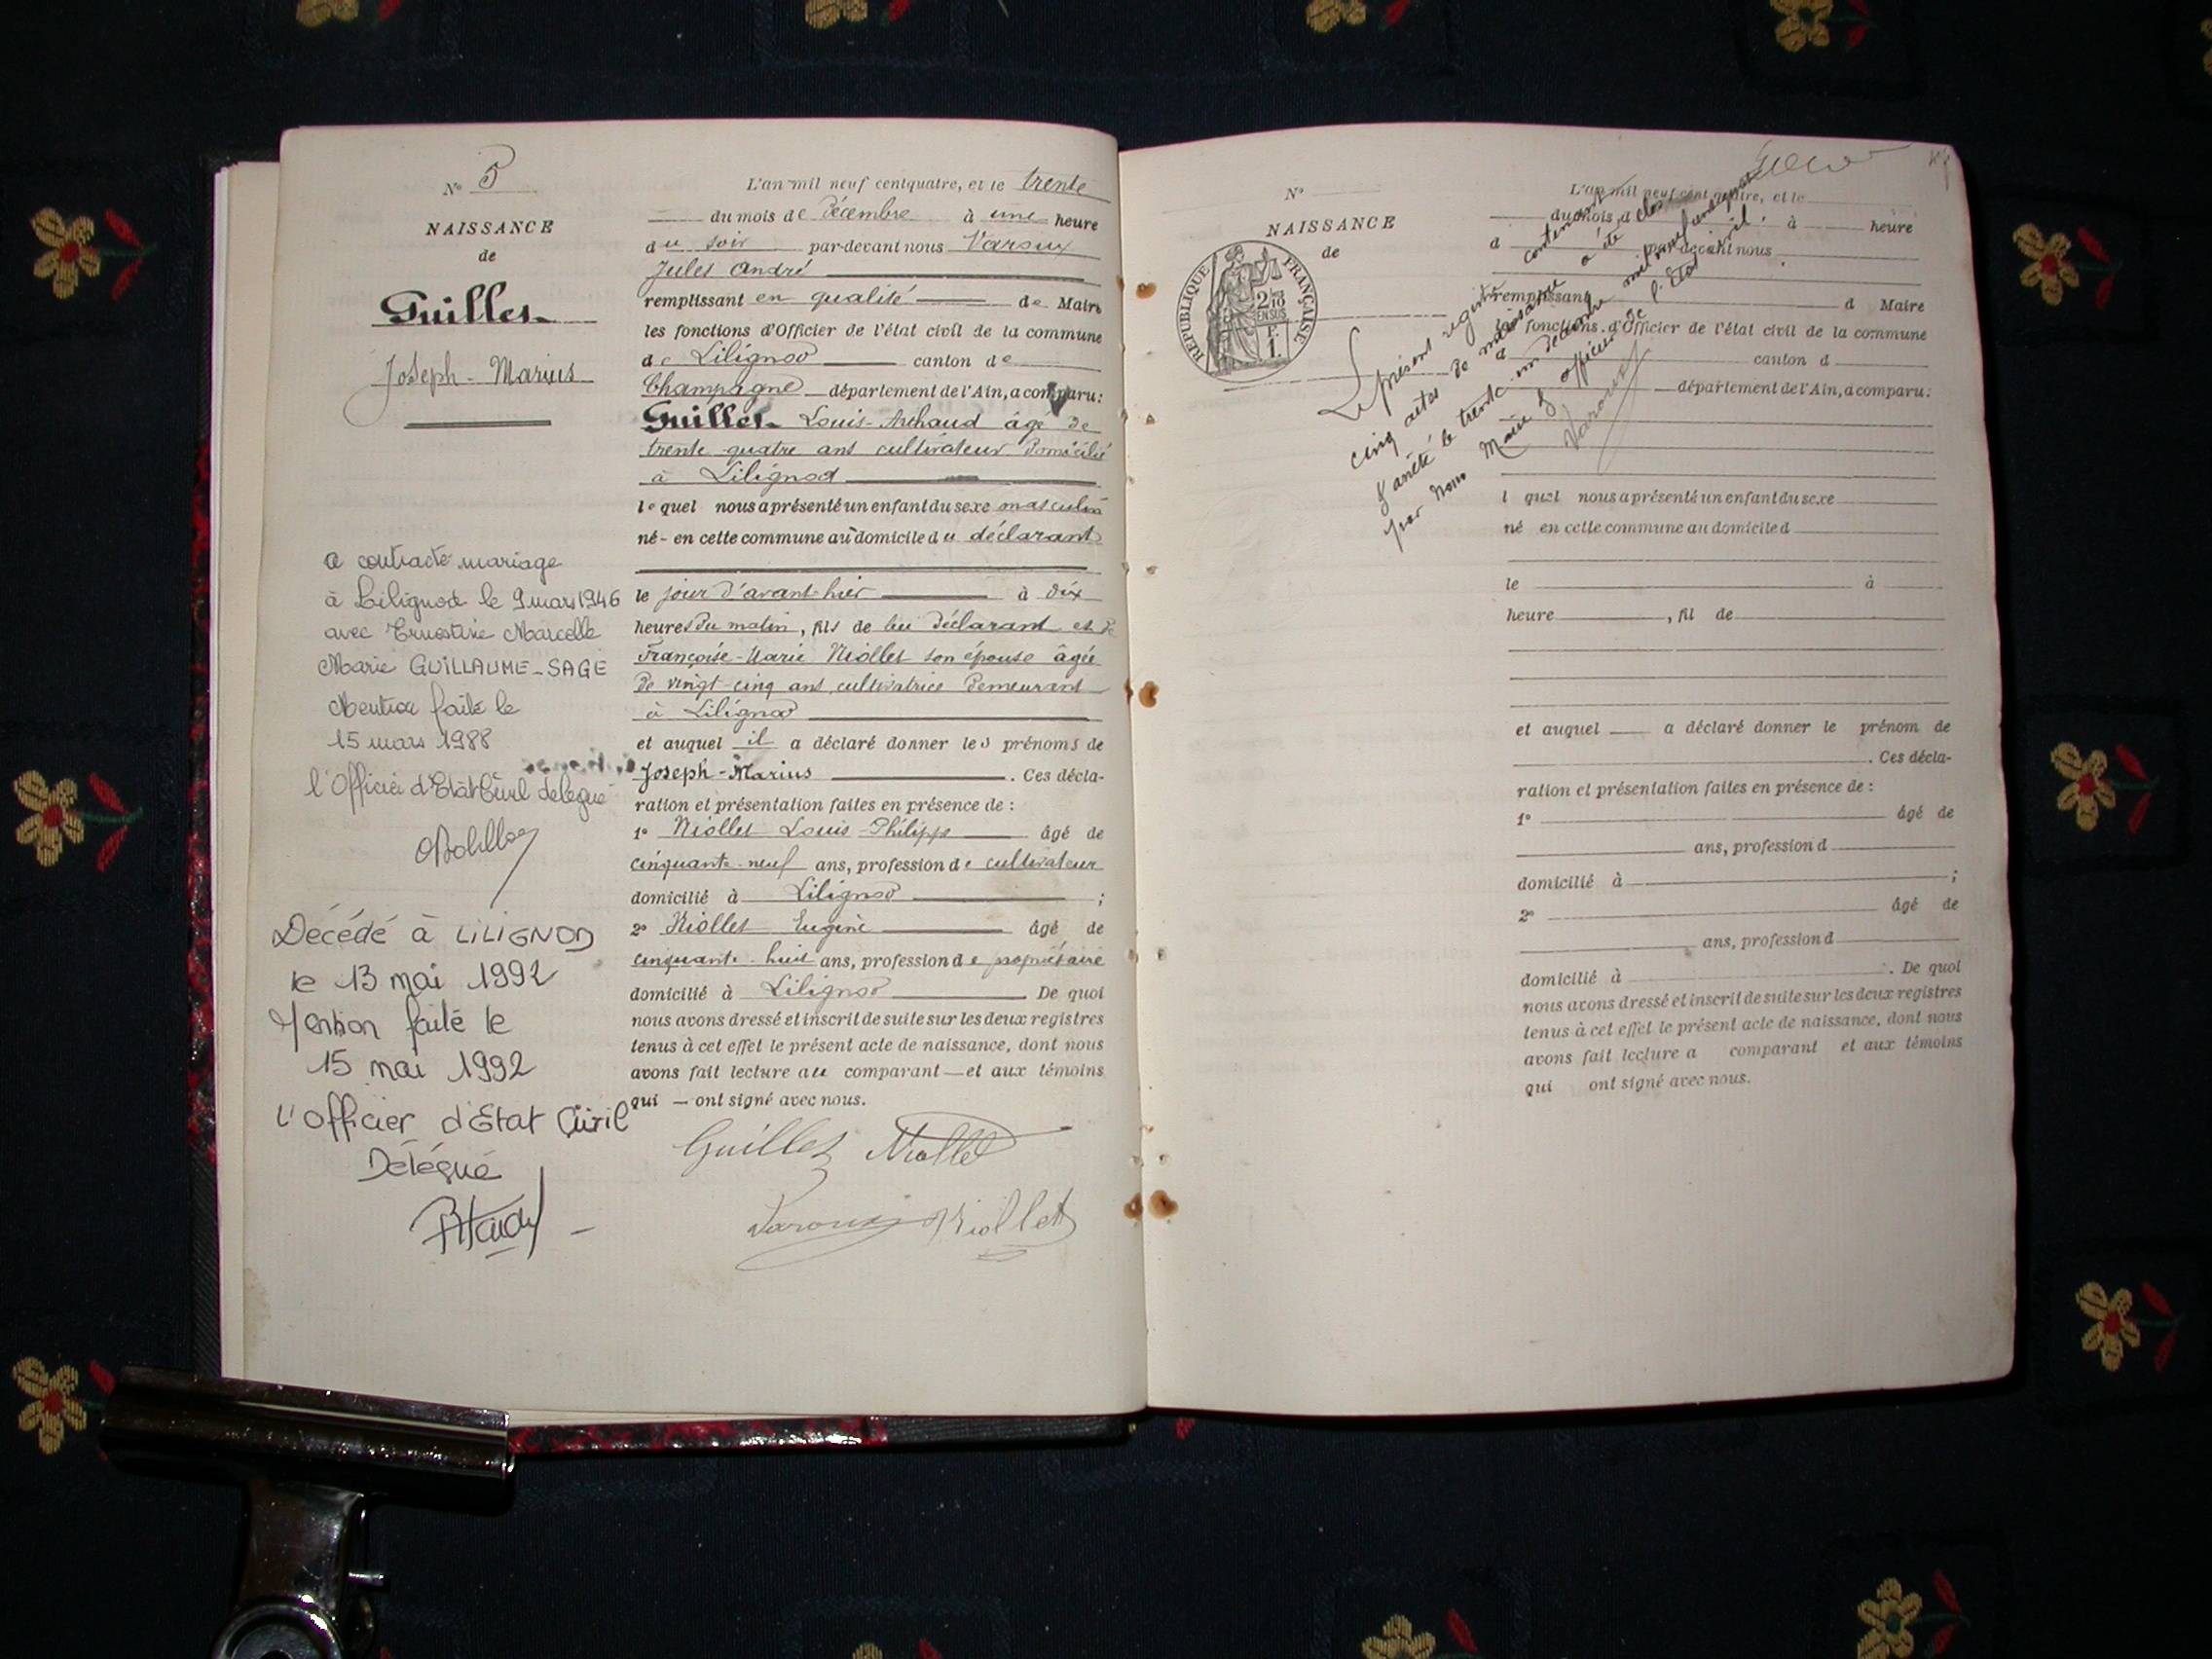 N° 5
NAISSANCE
de
Guillet
Joseph-Marius
a contracté mariage
à Lilignod le 9 mars 1946
avec Ernestine Marcelle
Marie GUILLAUME-SAGE
Mention faite le
15 mars 1988
l'Officier d'Etat Civil délégué
Décédé à LILIGNOD
le 13 mai 1992
Mention faite le
15 mai 1992
L'Officier d'Etat Civil
Délégué
L'an mil neuf cent quatre, et le trente
du mois de décembre à une heure
du soir par-devant nous Varoux
Jules André
remplissant en qualité de Maire
les fonctions d'Officier de l'état civil de la commune
de Lilignod canton de
Champagne département de l'Ain, a comparu:
Guillet Louis-Anthaud âgé de
trente quatre ans cultivateur domicilié
à Lilignod
lequel nous a présenté un enfant du sexe masculin
né en cette commune au domicile du déclarant
le jour d'avant-hier à dix
heures du matin, fils de lui déclarant et de
Françoise-Marie Niollet son épouse âgée
de vingt-cinq ans, cultivatrice demeurant
à Lilignod
et auquel il a déclaré donner les prénoms de
Joseph-Marius. Ces décla-
ration et présentation faites en présence de :
1° Niollet Louis-Philippe âgé de
cinquante-neuf ans, profession de cultivateur
domicilié à Lilignod ;
2° Niollet Eugène âgé de
cinquante-huit ans, profession de propriétaire
domicilié à Lilignod De quoi
nous avons dressé et inscrit de suite sur les deux registres
tenus à cet effet le présent acte de naissance, dont nous
avons fait lecture au comparant et aux témoins
qui ont signé avec nous.
Guillet Niollet
Varoux Niollet
N°
NAISSANCE
de
RÉPUBLIQUE FRANÇAISE
L'an mil neuf cent quatre, et le
du mois d à heure
d par-devant nous
remplissant d Maire
les fonctions d'Officier de l'état civil de la commune
d canton d
département de l'Ain, a comparu:
l quel nous a présenté un enfant du sexe
né en cette commune au domicile d
le à
heure , fil de
et auquel a déclaré donner le prénom de
. Ces décla-
ration et présentation faites en présence de :
1° âgé de
ans, profession d
domicilié à ;
2° âgé de
ans, profession d
domicilié à . De quoi
nous avons dressé et inscrit de suite sur les deux registres
tenus à cet effet le présent acte de naissance, dont nous
avons fait lecture a comparant et aux témoins
qui ont signé avec nous.
Le présent registre contenant
cinq actes de naissance a été clos
& arrêté le trente-un décembre mil neuf cent quatre
par nous Maire & officier de l'Etat civil.
Varoux